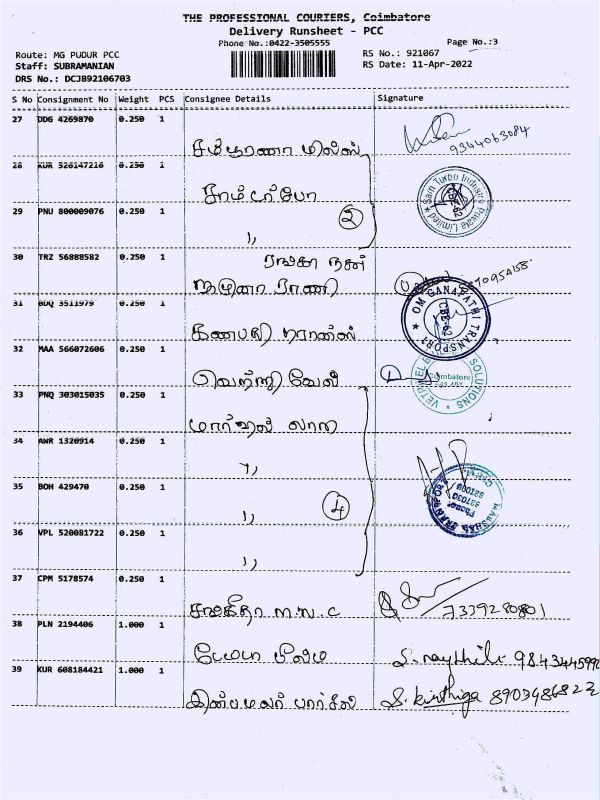 THE PROFESSIONAL COURIERS, Coimbatore
Delivery Runsheet - PCC
Phone No.:0422-3505555
Page No.:3
Route: MG PUDUR PCC
Staff: SUBRAMANIAN
DRS No.: DCJB92106703
RS No.: 921067
RS Date: 11-Apr-2022
S No Consignment No Weight PCS Consignee Details Signature
27 DDG 4269870 0.250 1
சம்பூரணா மில்ஸ்
9344063084
28 KUR 526147216 0.250 1
சாம் டர்போ
Sam Turbo Industry Private Limited
CBE-62
29 PNU 800009076 0.250 1
,,
2
30 TRZ 56888582 0.250 1
ரங்கா நகர்
யமுனா ராணி
31 BDQ 3511979 0.250 1
கணபதி டிரான்ஸ்
OM GANAPATHI TRANSPORT
CBE-62
32 MAA 566072606 0.250 1
வெற்றி வேல்
Coimbatore
SOLUTIONS
33 PNQ 303015035 0.250 1
மார்ஷல்
34 AWR 1320914 0.250 1
,,
35 BOH 429470 0.250 1
,,
4
Phone:
36 VPL 520081722 0.250 1
,,
37 CPM 5178574 0.250 1
சங்கீதா M.N.C
7339280801
38 PLN 2194406 1.000 1
39 KUR 608184421 1.000 1
இன்பமலர் பார்சல்
S. kirthiga 8903486823